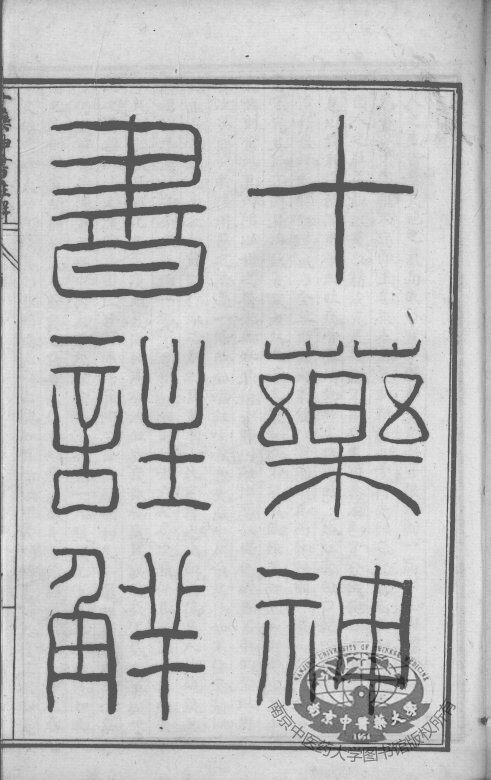 十藥神
書註觧
NANJING UNIVERSITY OF CHINESE MEDICINE
南京中醫藥大學
1954
南京中医药大学图书馆版权所有